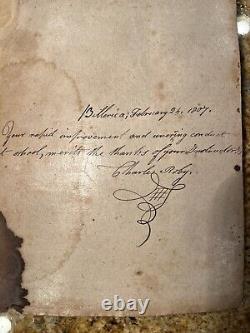 Billerica, February 26, 1807.
Your rapid improvement and uniform conduct
at school, merits the thanks of your Instructor,
Charles Roby.